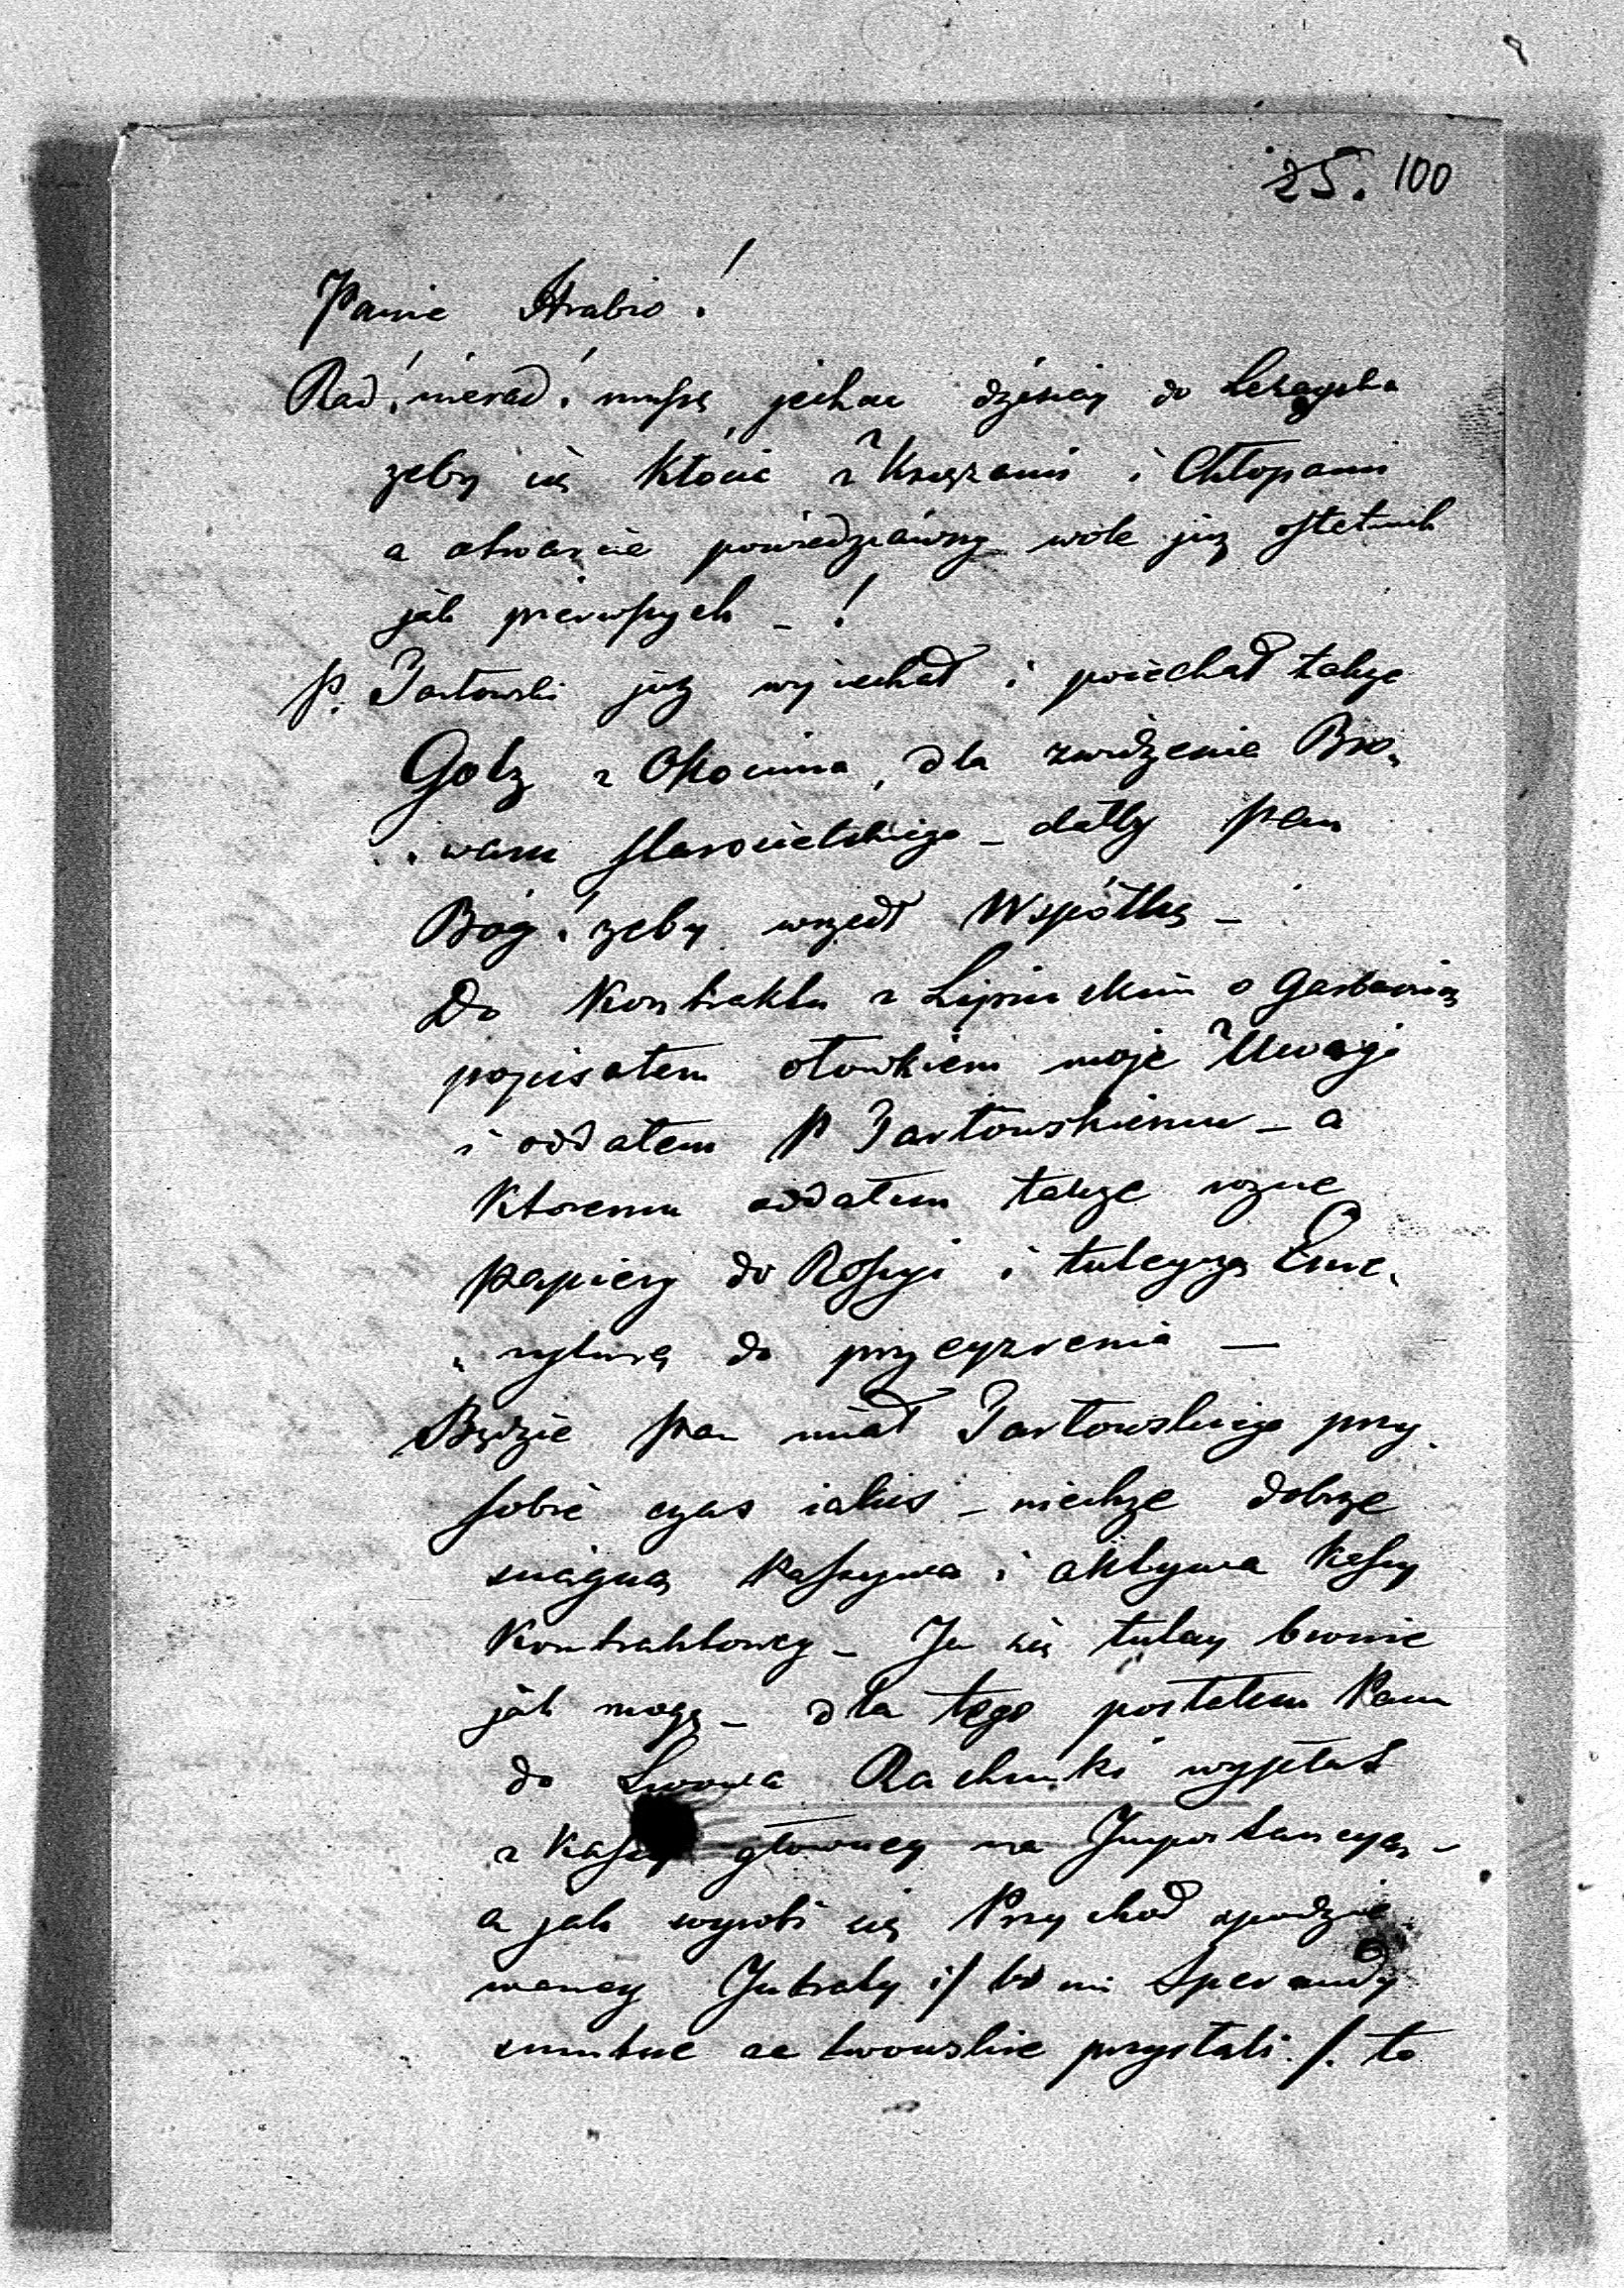 25. 100
Panie Hrabio!
Rad! nierad! muszę jechac dzisiaj do Leżayska
zeby się kłócić z Xsiężami i Chłopami
a otwarcie powiedziawszy wole już ostatnich
jak pierwszych - !
P. Jartowski już wyiechał i poiechał także
Gotz z Okocima, dla zwidzenia Bro„
„waru starosielskiego - dałby Pan
Bóg! żeby wszedł w Spółkę -
Do Kontraktu z Lipinskim o Garbarnią
popisałem ołowkiem moje Uwagi
i oddałem P Jartowskiemu - a
Ktoremu oddałem także rożne
papiery do Rossyi i tuteyszą Eme„
„ryturę do przeyrzenia —
Będzie Pan miał Jartowskiego przy
sobie czas iakiś - niechże dobrze
ściągną Passywa i aktywa Kassy
Kontraktowey - Ja się tutay bronie
jak mogę - dla tego posłałem Panu
do Lwowa Rachunki wypłat
z Kassy głowney na Importancye -
a jak wyrobi się Przychod spodzie
waney Intraty i/ bo mi Sperandy
smutne ze Lwowskie przysłali ./. to